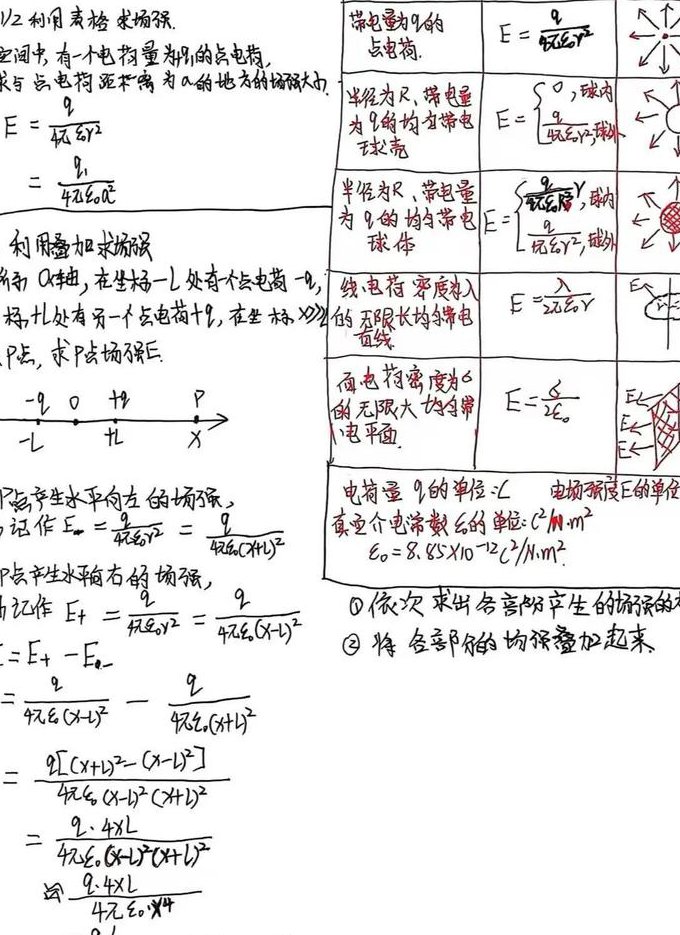 1/2 利用表格求场强.
空间中,有一个电荷量为q₁的点电荷,
求与点电荷距离为a的地方的场强大小.
E = q/4πε₀r²
= q₁/4πε₀a²
利用叠加求场强
所示 ox轴,在坐标-L处有一个点电荷-q,
标+L处有另一个点电荷+q,在坐标x>>L
P点,求P点场强E.
-q 0 +q P
-L +L x
P点产生水平向左的场强,
记作 E₋ = q/4πε₀r² = q/4πε₀(x+L)²
P点产生水平向右的场强,
记作 E₊ = q/4πε₀r² = q/4πε₀(x-L)²
= E₊ - E₋
= q/4πε₀(x-L)² - q/4πε₀(x+L)²
= q[(x+L)²-(x-L)²]/4πε₀(x-L)²(x+L)²
= q·4xL/4πε₀(x-L)²(x+L)²
q·4xL/4πε₀·x⁴
qL
带电量为q的
点电荷.
E = q/4πε₀r²
半径为R、带电量
为q的均匀带电
球壳
E = { 0,球内
q/4πε₀r²,球外
半径为R、带电量
为q的均匀带电
球体
E = { q/4πε₀R³ r,球内
q/4πε₀r²,球外
线电荷密度为λ
的无限长均匀带电
直线.
E = λ/2πε₀r
E
r
面电荷密度为σ
的无限大均匀带
电平面.
E = σ/2ε₀
E
E
E
电荷量q的单位:C 电场强度E的单位
真空介电常数ε₀的单位:C²/N·m²
ε₀ = 8.85×10⁻¹²C²/N·m².
① 依次求出各部分产生的场强的
② 将各部分的场强叠加起来.